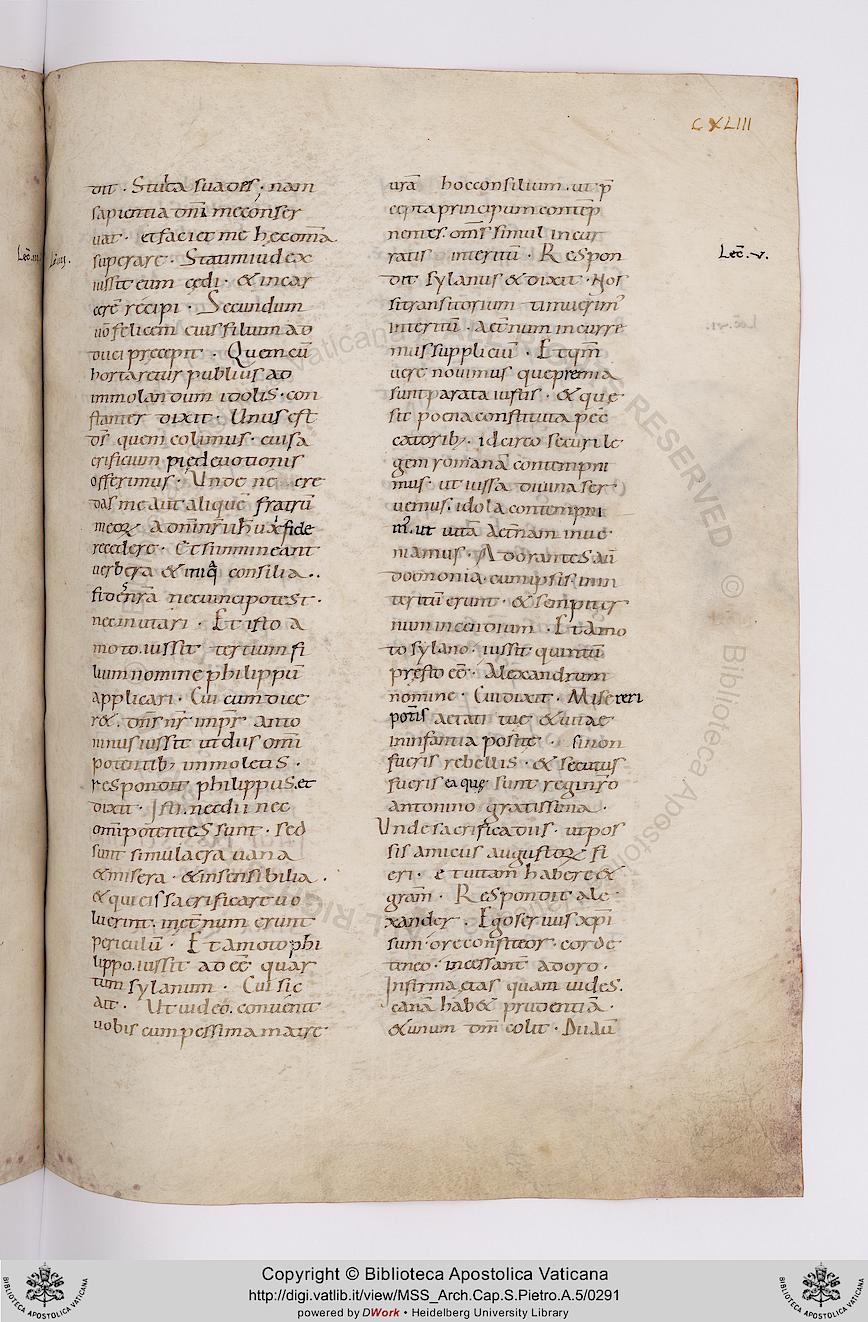 CXLIII
dit · Stulta sua dēs · nam
sapientia dn̄i me conser
uat · et faciet me hęc om̄a
superare · Statim iudex
iussit eum cędi · & in car
cerē recipi · Secundum
uō felicem eius filium ad
duci precepit · Quem cū
hortaretur publius ad
immolandum idolis · con
stanter dixit · Unus est
ds̄ quem colimus · cui sa
crificium pię deuotionis
offerimus · Unde ne cre
das me aut aliquē fratrū
meoꝝ a dn̄i nr̄i ihū xp̄i fide
recedere · Etsi immineant
uerbera & iniq̄ consilia ..
fides nr̄a nec uinci potest ·
nec mutari · Et isto a
moto. iussit tertium fi
lium nomine philippū
applicari · Cui cum dice
r& · dn̄s nr̄ imp̄r anto
ninus iussit ut diis om̄i
potentib; immoletis ·
respondit philippus. et
dixit · Isti. nec dii nec
om̄ipotentes sunt · sed
sunt simulacra uana
& misera · & insensibilia ·
& qui eis sacrificare uo
luerint. in ęt̄num erunt
periculū · Et amoto phi
lippo. iussit ad eē quar
tum sylanum · Cui sic
ait · Ut uideo. conuenit
uobis cum pessima matre
ur̄a hoc consilium · ut p̄
cepta principum contēp
nentes. om̄s simul incur
ratis interitū · Respon
dit sylanus & dixit · Nos
si transitorium timuerim᷒
interitū · aet̄num incurre
mus suppliciū · Et qm̄
uere nouimus que premia
sunt parata iustis · & que
sit poena constituta pec
catorib; · idcirco securi le
gem romanā contempni
mus · ut iussa diuina ser
uemus. idola contempni
m᷒. ut uitā aet̄nam inue
niamus · Adorantes aū
doemonia · cum ipsis in in
teritū erunt · & sempiter
num in cędrium · Et amo
to sylano · iussit quintū
pręsto eē · Alexandrum
nomine · Cui dixit · Misereri
potis aetati tuę & uitae
in infantia posite · si non
fueris rebellis · & secutus
fueris ea quę sunt regi nr̄o
antonino gratissena ·
Unde sacrifica diis · ut pos
sis amicus augustoꝝ fi
eri · et uitam habere &
gram̄ · Respondit ale
xander · Ego seruus xp̄i
sum · ore confiteor · corde
teneo · incessant̄ adoro ·
Infirma ętas quam uides.
canā hab& prudentiā ·
& unum dm̄ colit · Dii aū
Lec̄. v.
Copyright © Biblioteca Apostolica Vaticana
http://digi.vatlib.it/view/MSS_Arch.Cap.S.Pietro.A.5/0291
powered by DWork • Heidelberg University Library